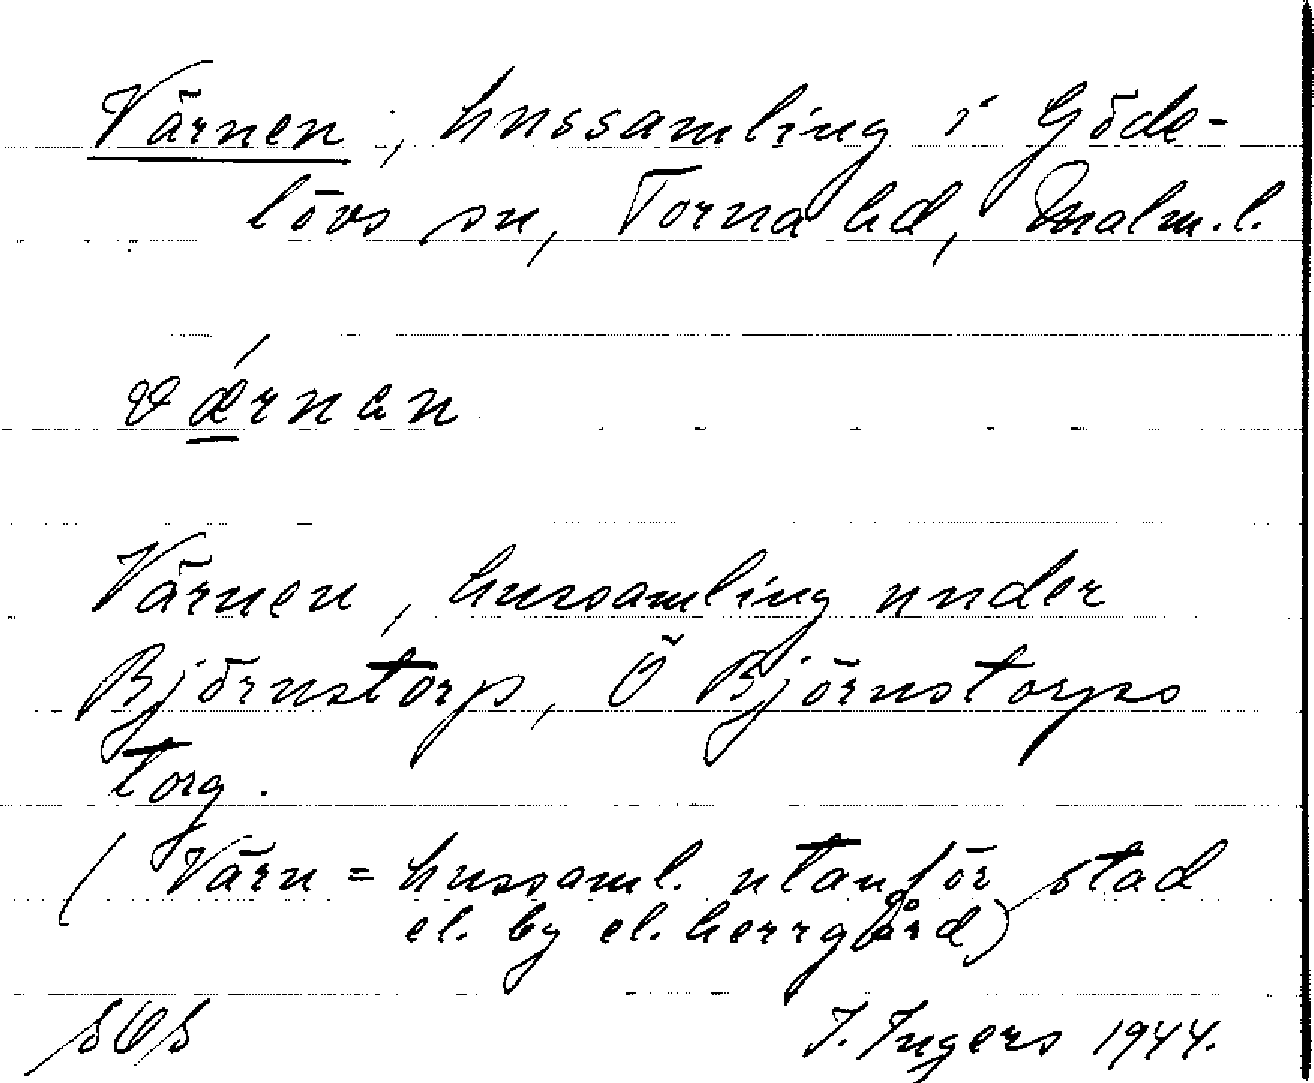 Värnen, hussamling i Göde-
lövs sn, Torna hd, Malm.l.
værnan
Värnen, hussamling under
Björnstorp, Ö Björnstorps
torg.
(Värn = hussaml. utanför stad
el. by el. herrgård)
I. Ingers 1944.